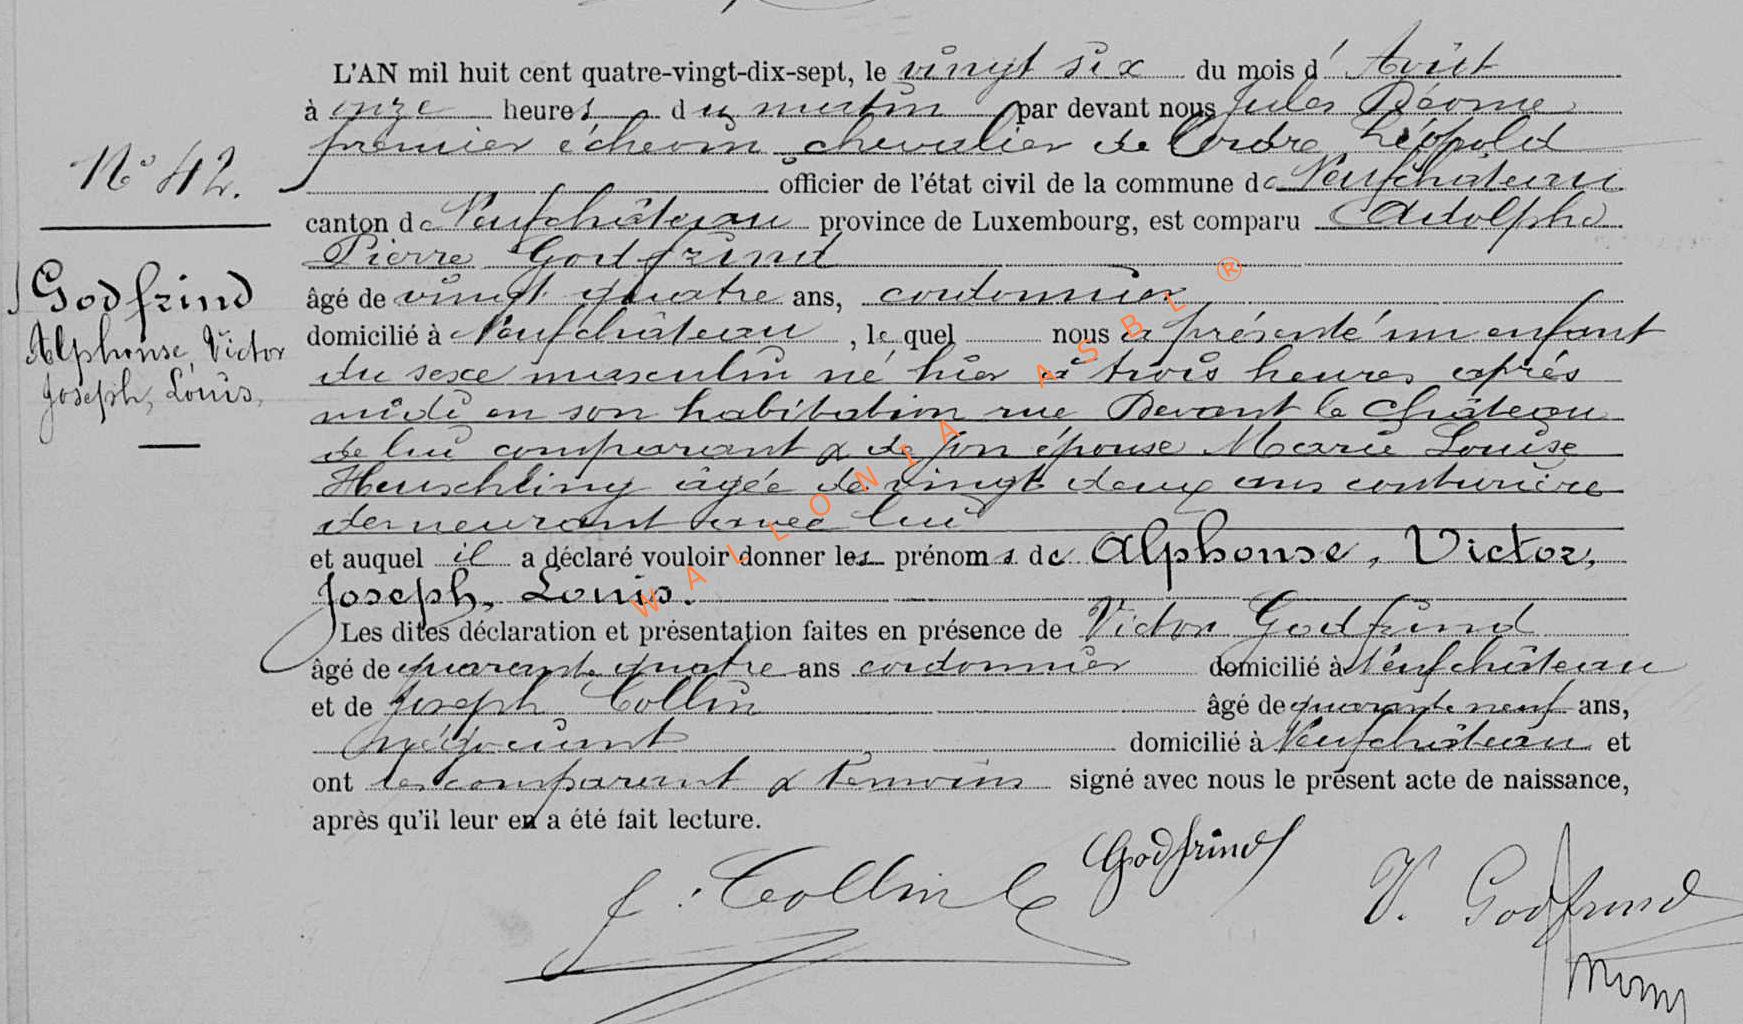 L'AN mil huit cent quatre-vingt-dix-sept, le vingt six du mois d' Août
à onze heures du matin par devant nous Jules Déome
premier échevin chevalier de l'ordre Léopold
officier de l'état civil de la commune de Neufchâteau
canton de Neufchâteau province de Luxembourg, est comparu Adolphe
Pierre Godfrind
âgé de vingt quatre ans, cordonnier
domicilié à Neufchâteau, le quel nous a présenté un enfant
du sexe masculin né hier à trois heures après
midi en son habitation rue Devant le Château
de lui comparant & de son épouse Marie Louise
Heuschling âgée de vingt deux ans couturière
demeurant avec lui
et auquel il a déclaré vouloir donner les prénoms de Alphonse, Victor,
Joseph, Louis.
Les dites déclaration et présentation faites en présence de Victor Godfrind
âgé de quarante quatre ans cordonnier domicilié à Neufchâteau
et de Joseph Collin âgé de quarante neuf ans,
négociant domicilié à Neufchâteau et
ont les comparant & témoins signé avec nous le présent acte de naissance,
après qu'il leur en a été fait lecture.
N° 42.
Godfrind
Alphonse, Victor
Joseph, Louis,
J. Collin
Godfrind
V. Godfrind
WALLONIA ASBL ®